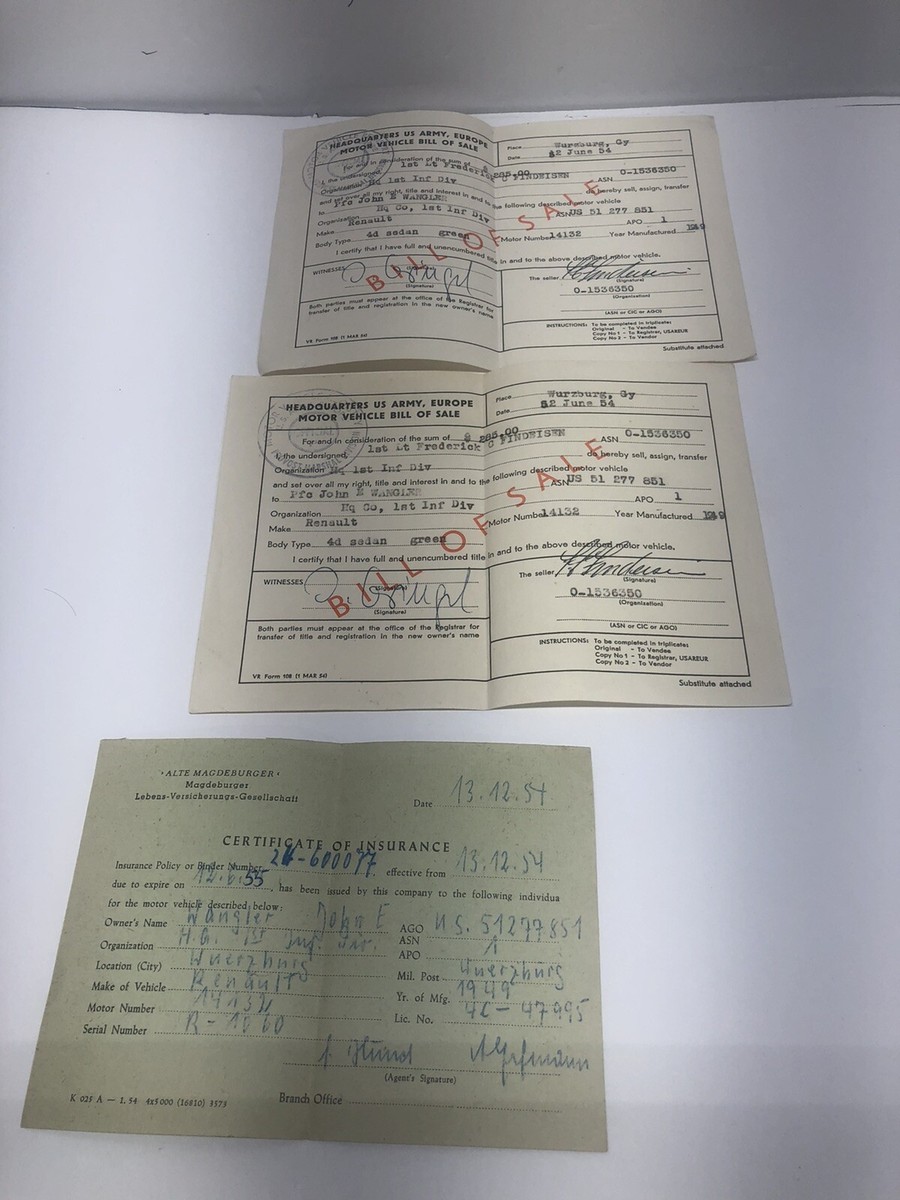 HEADQUARTERS US ARMY, EUROPE
MOTOR VEHICLE BILL OF SALE
Place Wurzburg, Gy
Date 12 June 54
For and in consideration of the sum of $ 285.00
I, the undersigned, 1st Lt Frederick C FINDEISEN ASN 0-1536350
Organization Hq 1st Inf Div do hereby sell, assign, transfer
and set over all my right, title and interest in and to the following described motor vehicle
to Pfc John E WANGLER ASN US 51 277 851
Organization Hq Co, 1st Inf Div APO 1
Make Renault Motor Number 14132 Year Manufactured 1949
Body Type 4d sedan green
I certify that I have full and unencumbered title in and to the above described motor vehicle.
BILL OF SALE
WITNESSES
(Signature)
The seller
(Signature)
0-1536350
(Organization)
(ASN or CIC or AGO)
Both parties must appear at the office of the Registrar for
transfer of title and registration in the new owner's name
INSTRUCTIONS: To be completed in triplicate:
Original - To Vendee
Copy No 1 - To Registrar, USAREUR
Copy No 2 - To Vendor
VR Form 108 (1 MAR 54)
Substitute attached
HEADQUARTERS US ARMY, EUROPE
MOTOR VEHICLE BILL OF SALE
Place Wurzburg, Gy
Date 12 June 54
For and in consideration of the sum of $ 285.00
I, the undersigned, 1st Lt Frederick C FINDEISEN ASN 0-1536350
Organization Hq 1st Inf Div do hereby sell, assign, transfer
and set over all my right, title and interest in and to the following described motor vehicle
to Pfc John E WANGLER ASN US 51 277 851
Organization Hq Co, 1st Inf Div APO 1
Make Renault Motor Number 14132 Year Manufactured 1949
Body Type 4d sedan green
I certify that I have full and unencumbered title in and to the above described motor vehicle.
BILL OF SALE
WITNESSES
(Signature)
(Signature)
The seller
(Signature)
0-1536350
(Organization)
(ASN or CIC or AGO)
Both parties must appear at the office of the Registrar for
transfer of title and registration in the new owner's name
INSTRUCTIONS: To be completed in triplicate:
Original - To Vendee
Copy No 1 - To Registrar, USAREUR
Copy No 2 - To Vendor
VR Form 108 (1 MAR 54)
Substitute attached
"ALTE MAGDEBURGER"
Magdeburger
Lebens-Versicherungs-Gesellschaft
Date 13.12.54
CERTIFICATE OF INSURANCE
Insurance Policy or Binder Number 24-600077 effective from 13.12.54
due to expire on 12.6.55, has been issued by this company to the following individua
for the motor vehicle described below:
Owner's Name Wangler John E AGO US. 51277851
ASN
Organization H.Q. 1st Inf. Div. APO 1
Location (City) Wuerzburg Mil. Post Wuerzburg
Make of Vehicle Renault Yr. of Mfg. 1949
Motor Number 14132 Lic. No. 4C-47995
Serial Number R-1060
(Agent's Signature)
Branch Office
K 025 A — 1. 54 4x5000 (16810) 3573